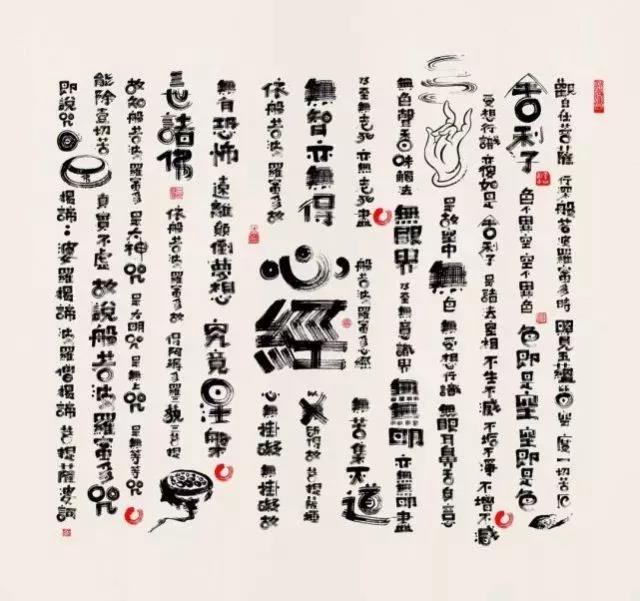 觀自在菩薩 行深般若波羅蜜多時 照見五蘊皆空 度一切苦厄
舍利子 色不異空 空不異色 色即是空 空即是色
受想行識 亦復如是 舍利子 是諸法空相 不生不滅 不垢不淨 不增不減
是故空中無色 無受想行識 無眼耳鼻舌身意
無色聲香味觸法 無眼界 乃至無意識界 無無明 亦無無明盡
乃至無老死 亦無老死盡 般若波羅蜜多心經 無苦集滅道
無智亦無得
心經
以 所得故 菩提薩埵
依般若波羅蜜多故 心無掛礙 無掛礙故
無有恐怖 遠離顛倒夢想 究竟涅槃
三世諸佛 依般若波羅蜜多故 得阿耨多羅三藐三菩提
故知般若波羅蜜多 是大神咒 是大明咒 是無上咒 是無等等咒
能除壹切苦 真實不虛 故說般若波羅蜜多咒
即說咒曰 揭諦 婆羅揭諦 波羅僧揭諦 菩提薩婆訶